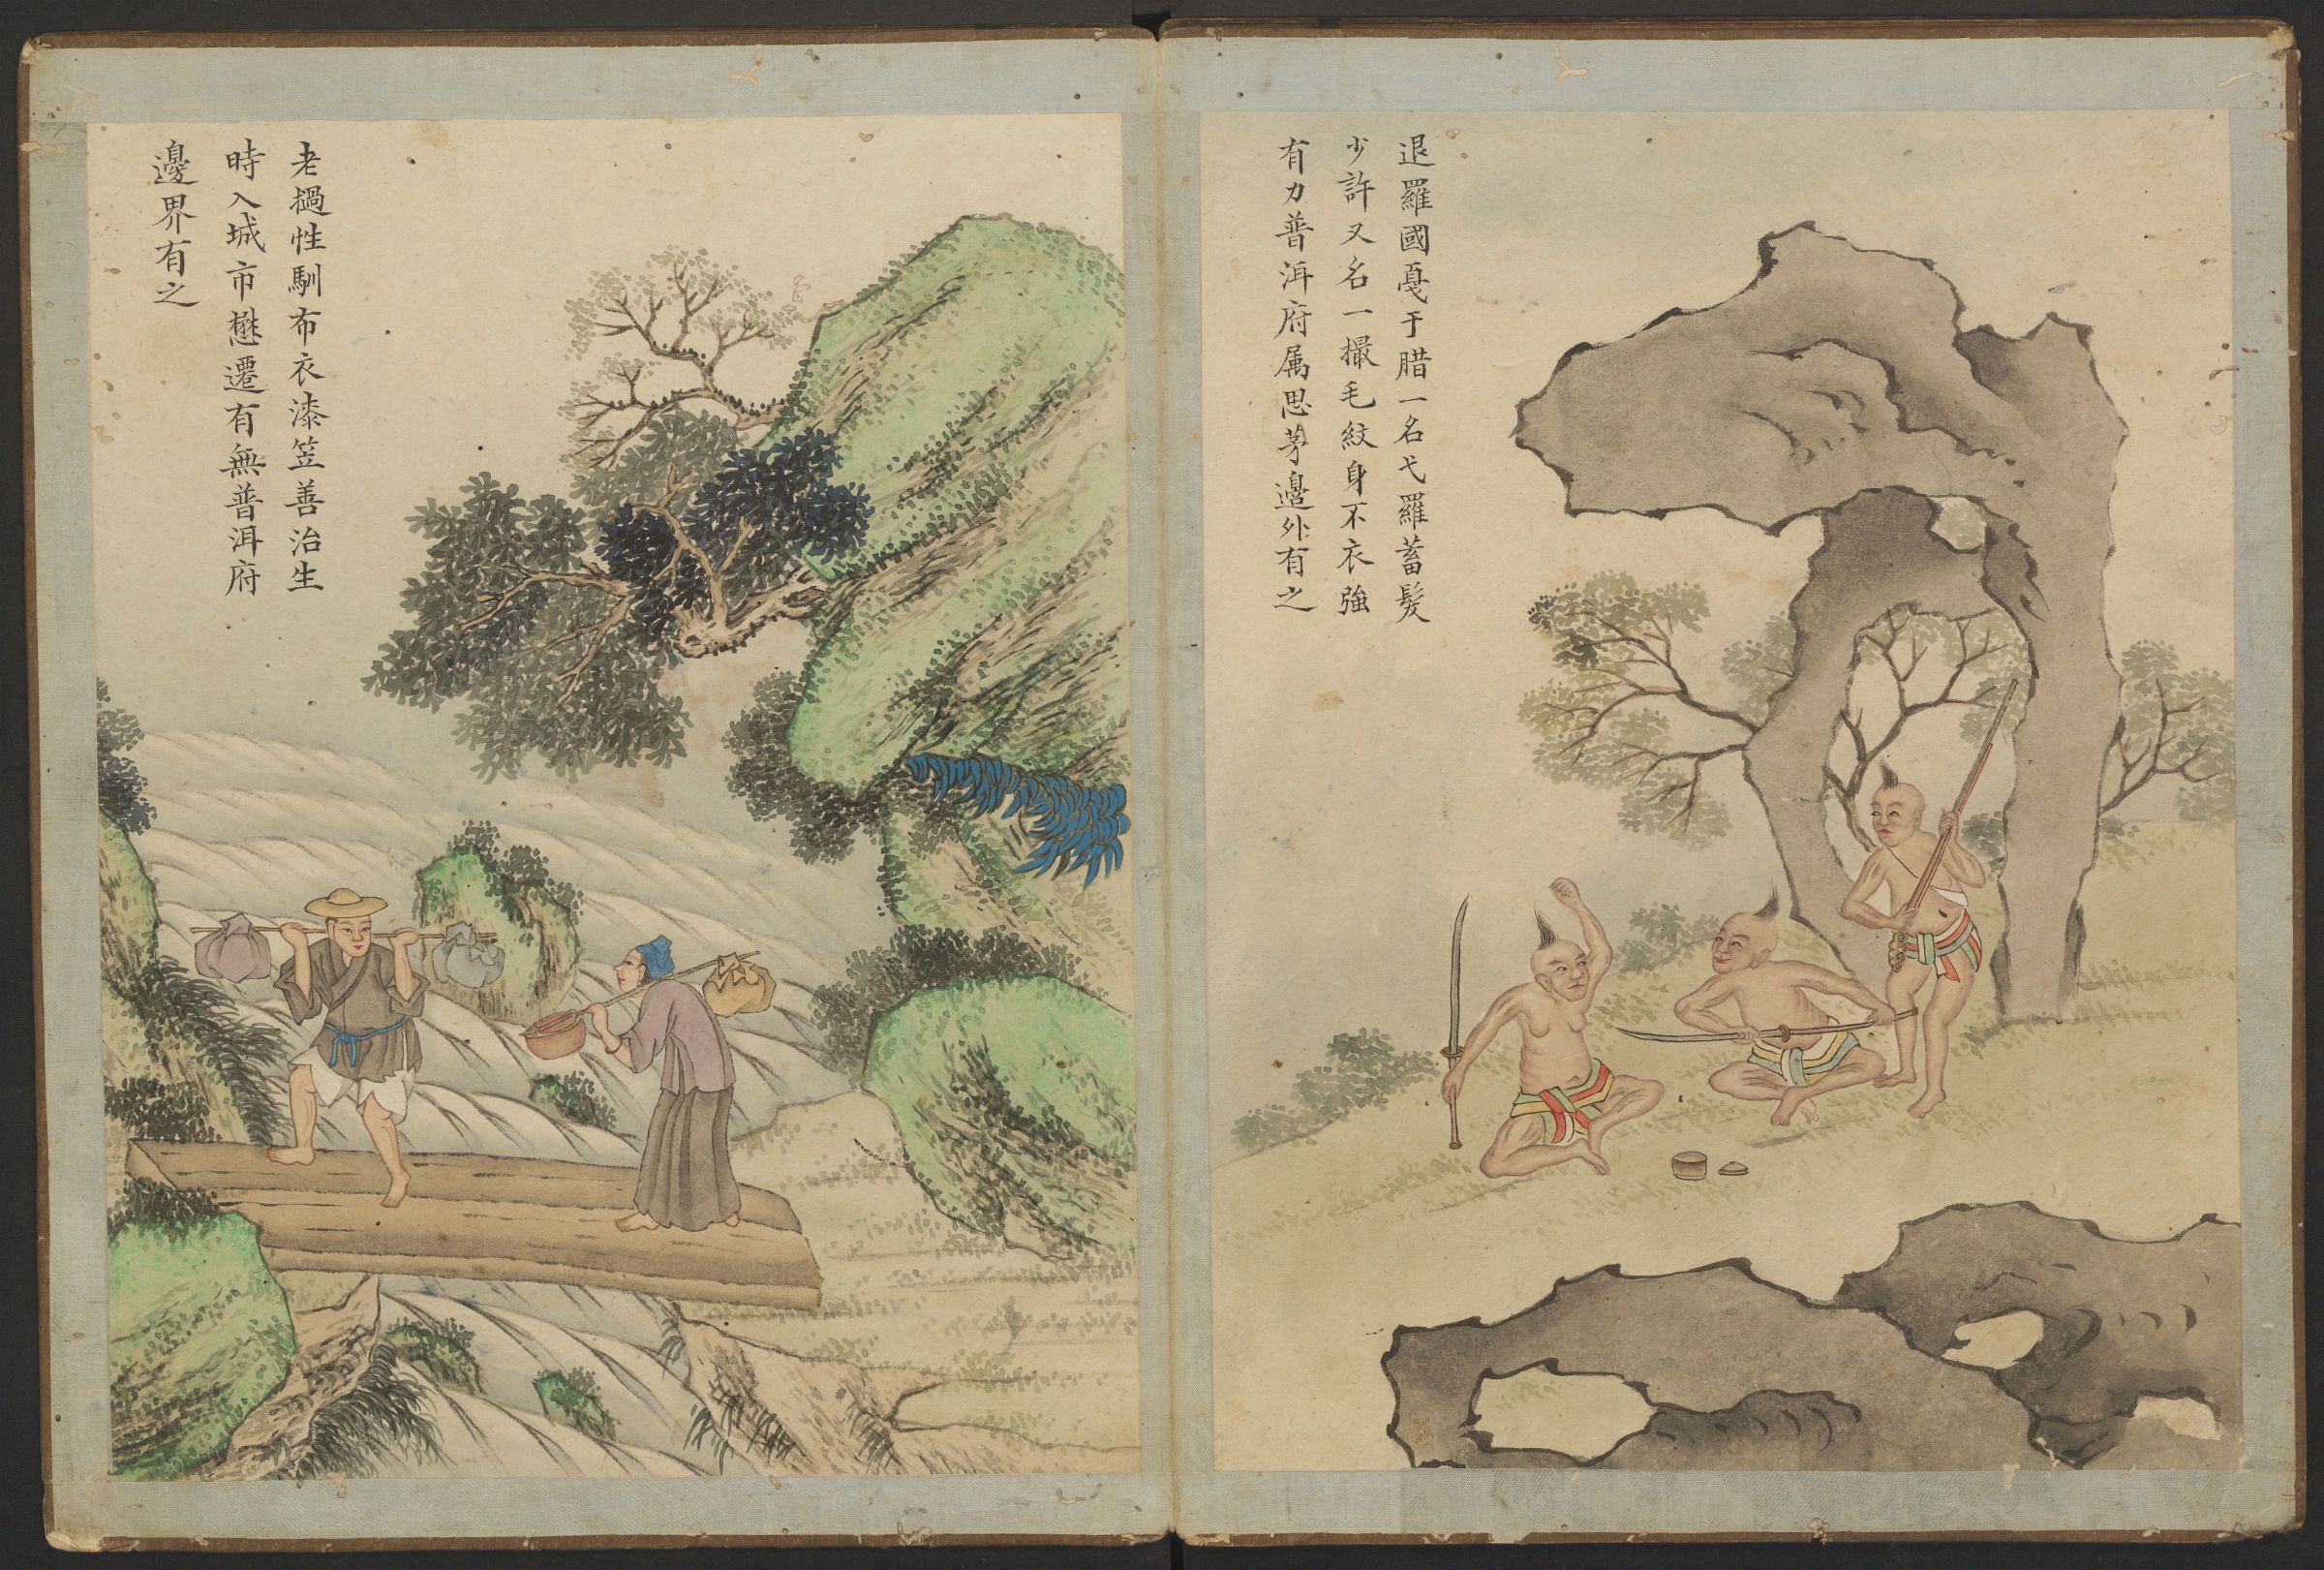 退羅國戞于腊一名弋羅蓄髮
少許又名一撮毛紋身不衣強
有力普洱府属思茅邉外有之
老撾性馴布衣漆笠善治生
時入城市懋遷有無普洱府
邊界有之